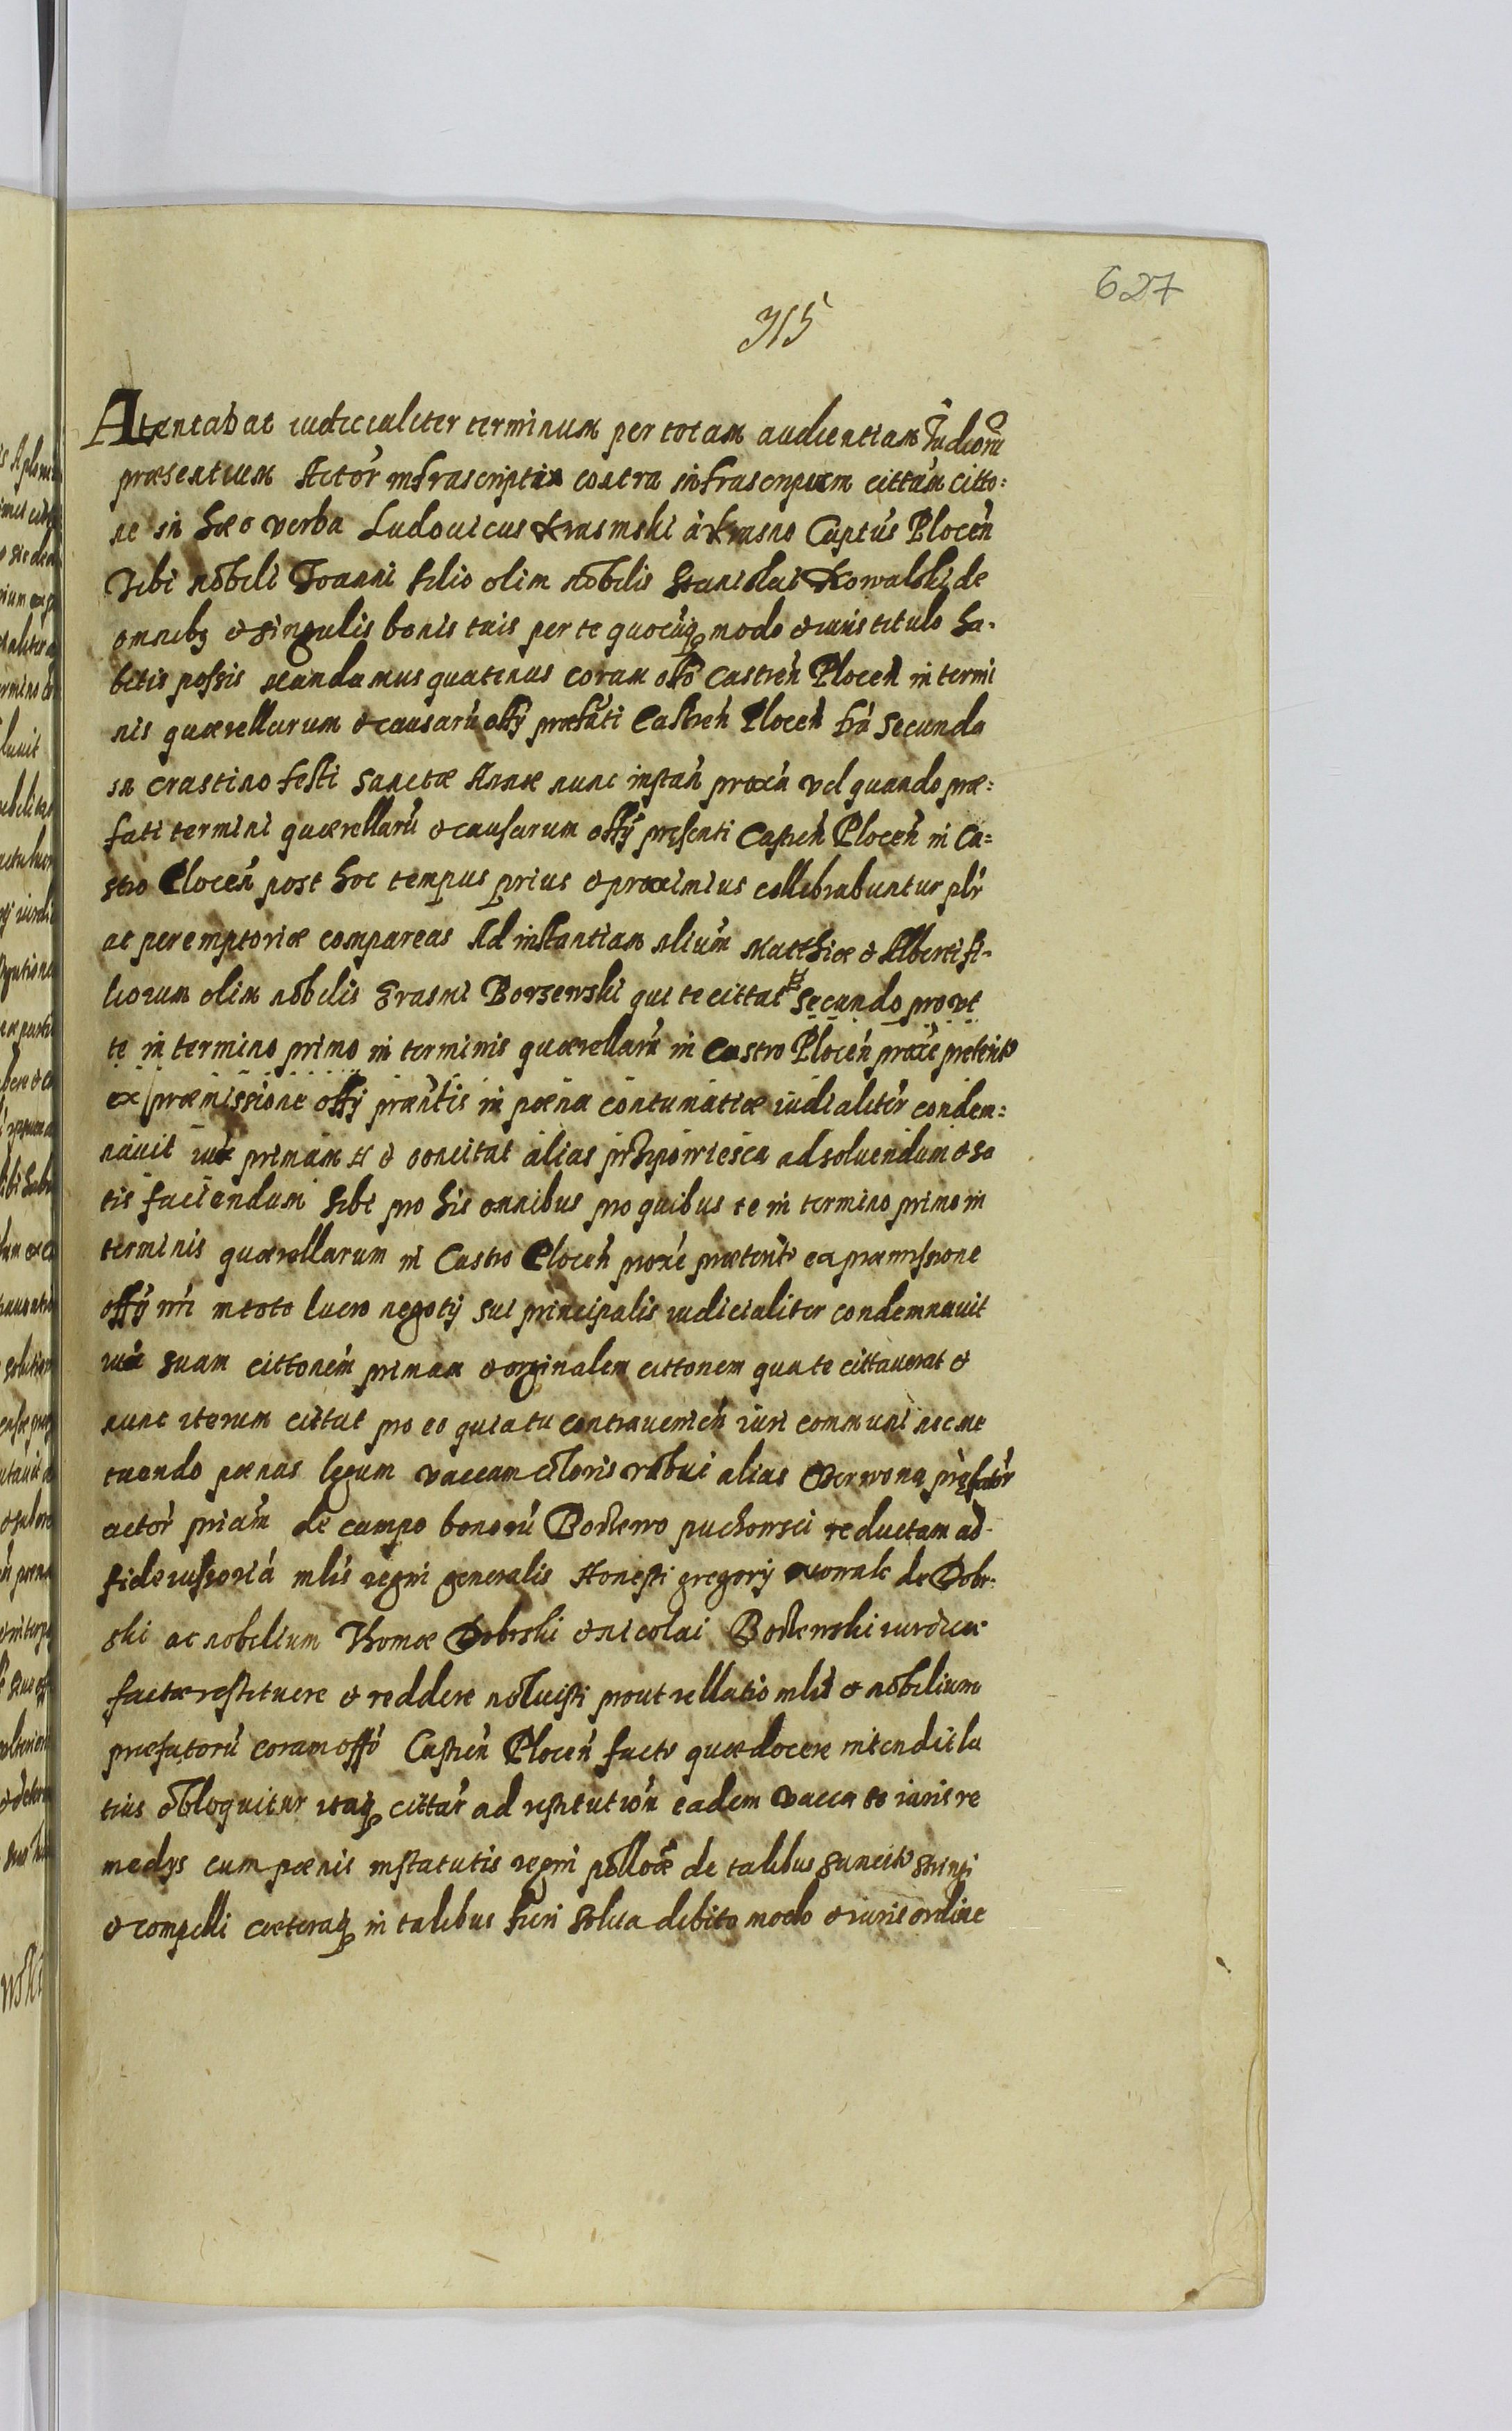 627
315
Attentabat iudicialiter terminum per totam audientiam Iudiorũ
præsentium Actor infrascriptæ contra infrascriptum cittatũ citto=
ne in hæc verba Ludouicus Krasinski à Krasno Captus Plocen
Tibi nobili Joanni filio olim nobilis Stanislai Kowalski de
omnibq et singulis bonis tuis per te quocuq modo et iuris titulo ha=
bitis possis mandamus quatenus coram offo Castren Plocen in termi
nis quærellarum et causarũ offy præfati Castren Plocen fra secunda
in crastino festi Sanctæ Annæ nunc instan proxi vel quando præ=
fati termini quærellarũ et causarum offy presenti Castren Plocen in Ca=
stro Plocen post hoc tempus prius et proximius cellebrabuntur plr
ac peremptoriæ compareas Ad instantiam nlium Matthiæ et Alberti fi=
liorum olim nobilis Erasmi Borzewski qui te cittat secundo prout
te in termino primo in terminis quærellarũ in Castro Plocen proxe preterito
ex præmissione offy præntis in pæna contumatiæ iudialiter condem=
nauit iux primam et concitat alias przypowiesca ad soluendum et sa
tis faciendum sibi pro his omnibus pro quibus te in termino primo in
terminis quærellarum in Castro Plocen proxe præterito ex præmissione
offy nri in toto lucro negoty sui principalis iudicialiter condemnauit
iux suam cittonem primam et orginalem cittonem qua te cittauerat et
nunc iterum cittat pro eo quia tu contraueniẽ iuri communi nec me
tuendo pænas legum vaccam coloris rubui alias czerwona prefator
actor priam de campo bonorũ Borzewo puchowsci reductam ad
fideiussoriã mlis regni generalis Honesti gregory de Dobr=
ski ac nobilium Thomæ Dobrski et nicolai Borzewski iuridicæ
factæ restituere et reddere noluisti prout rellatio mlis et nobilium
præfatorũ coram offo Castren Plocen facta quæ docere intendit la
tius obloquitur itaq cittar ad restitution eadem vacca iuris re
medys cum pænis in statutis regni polloæ de talibus suncito stringi
et compelli cæteraq in talibus fieri solita debito modo et iuris ordine